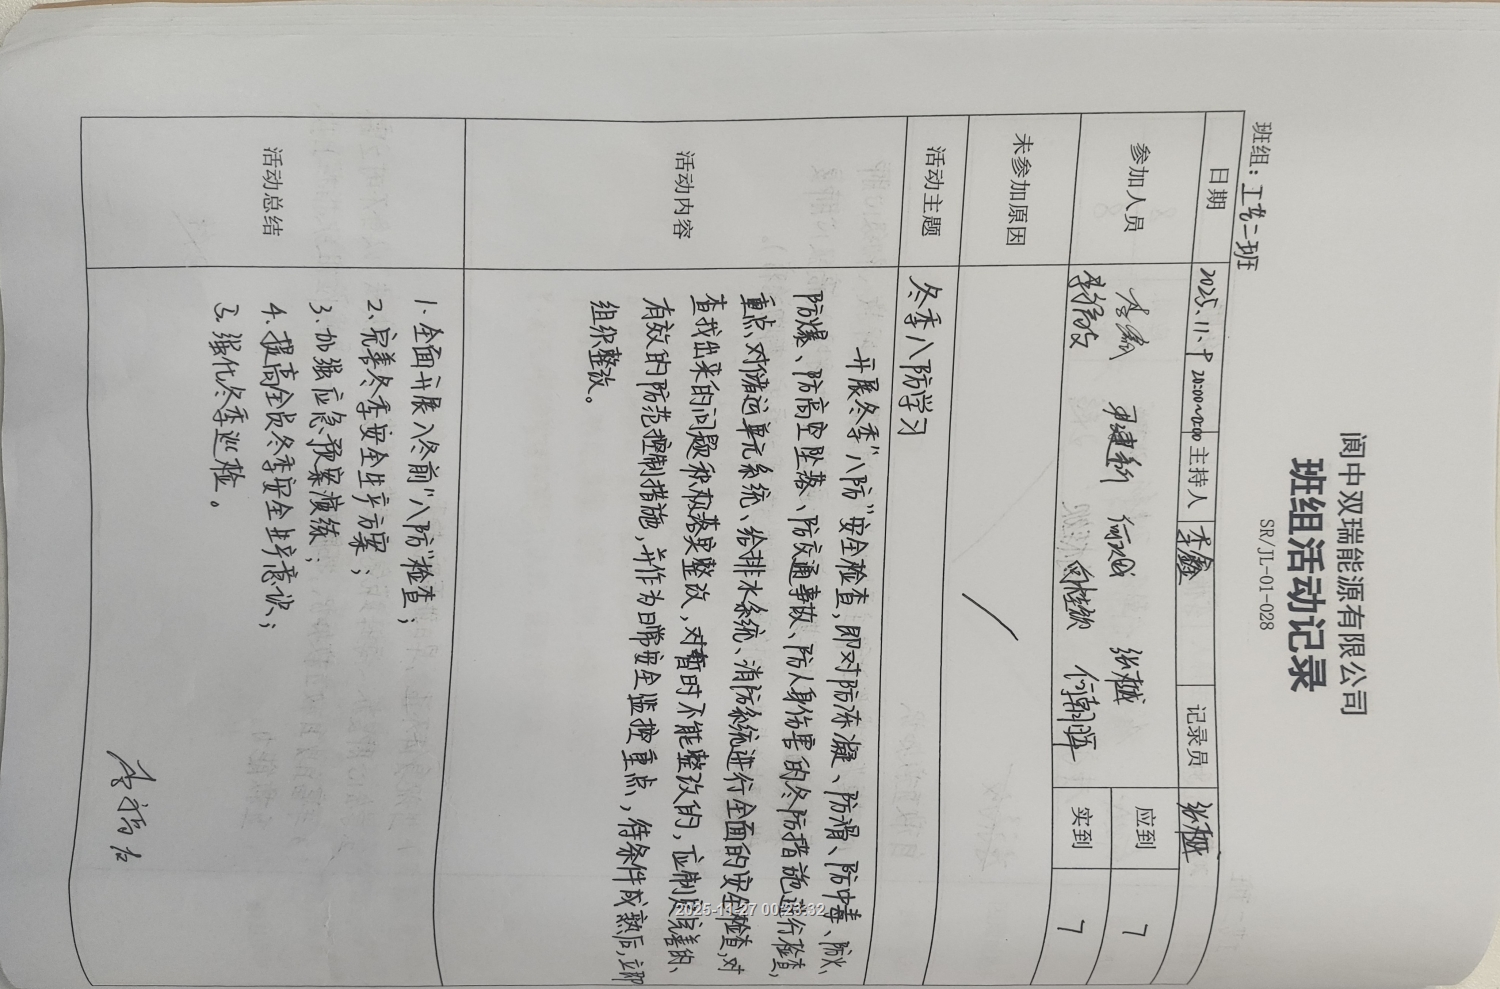 阆中双瑞能源有限公司
班组活动记录
SR/JL-01-028
班组：工艺二班
日期 2025.11.9 20:00~21:00 主持人 李鑫 记录员 张樾
参加人员 李鑫 尹建新 张樾 应到 7
实到 7
未参加原因 /
活动主题 冬季八防学习
活动内容
开展冬季“八防”安全检查，即对防冻凝、防滑、防中毒、防火、
防爆、防高空坠落、防交通事故、防人身伤害的冬防措施进行检查，
重点、对储运单元系统、给排水系统、消防系统进行全面的安全检查，对
查找出来的问题积极落实整改，对暂时不能整改的，应制定完善的、
有效的防范控制措施，并作为日常安全监控重点，待条件成熟后，立即
组织整改。
活动总结
1、全面开展入冬前“八防”检查；
2、完善冬季安全生产方案；
3、加强应急预案演练；
4、提高全员冬季安全生产意识；
5、强化冬季巡检。
2025-11-27 00:23:32